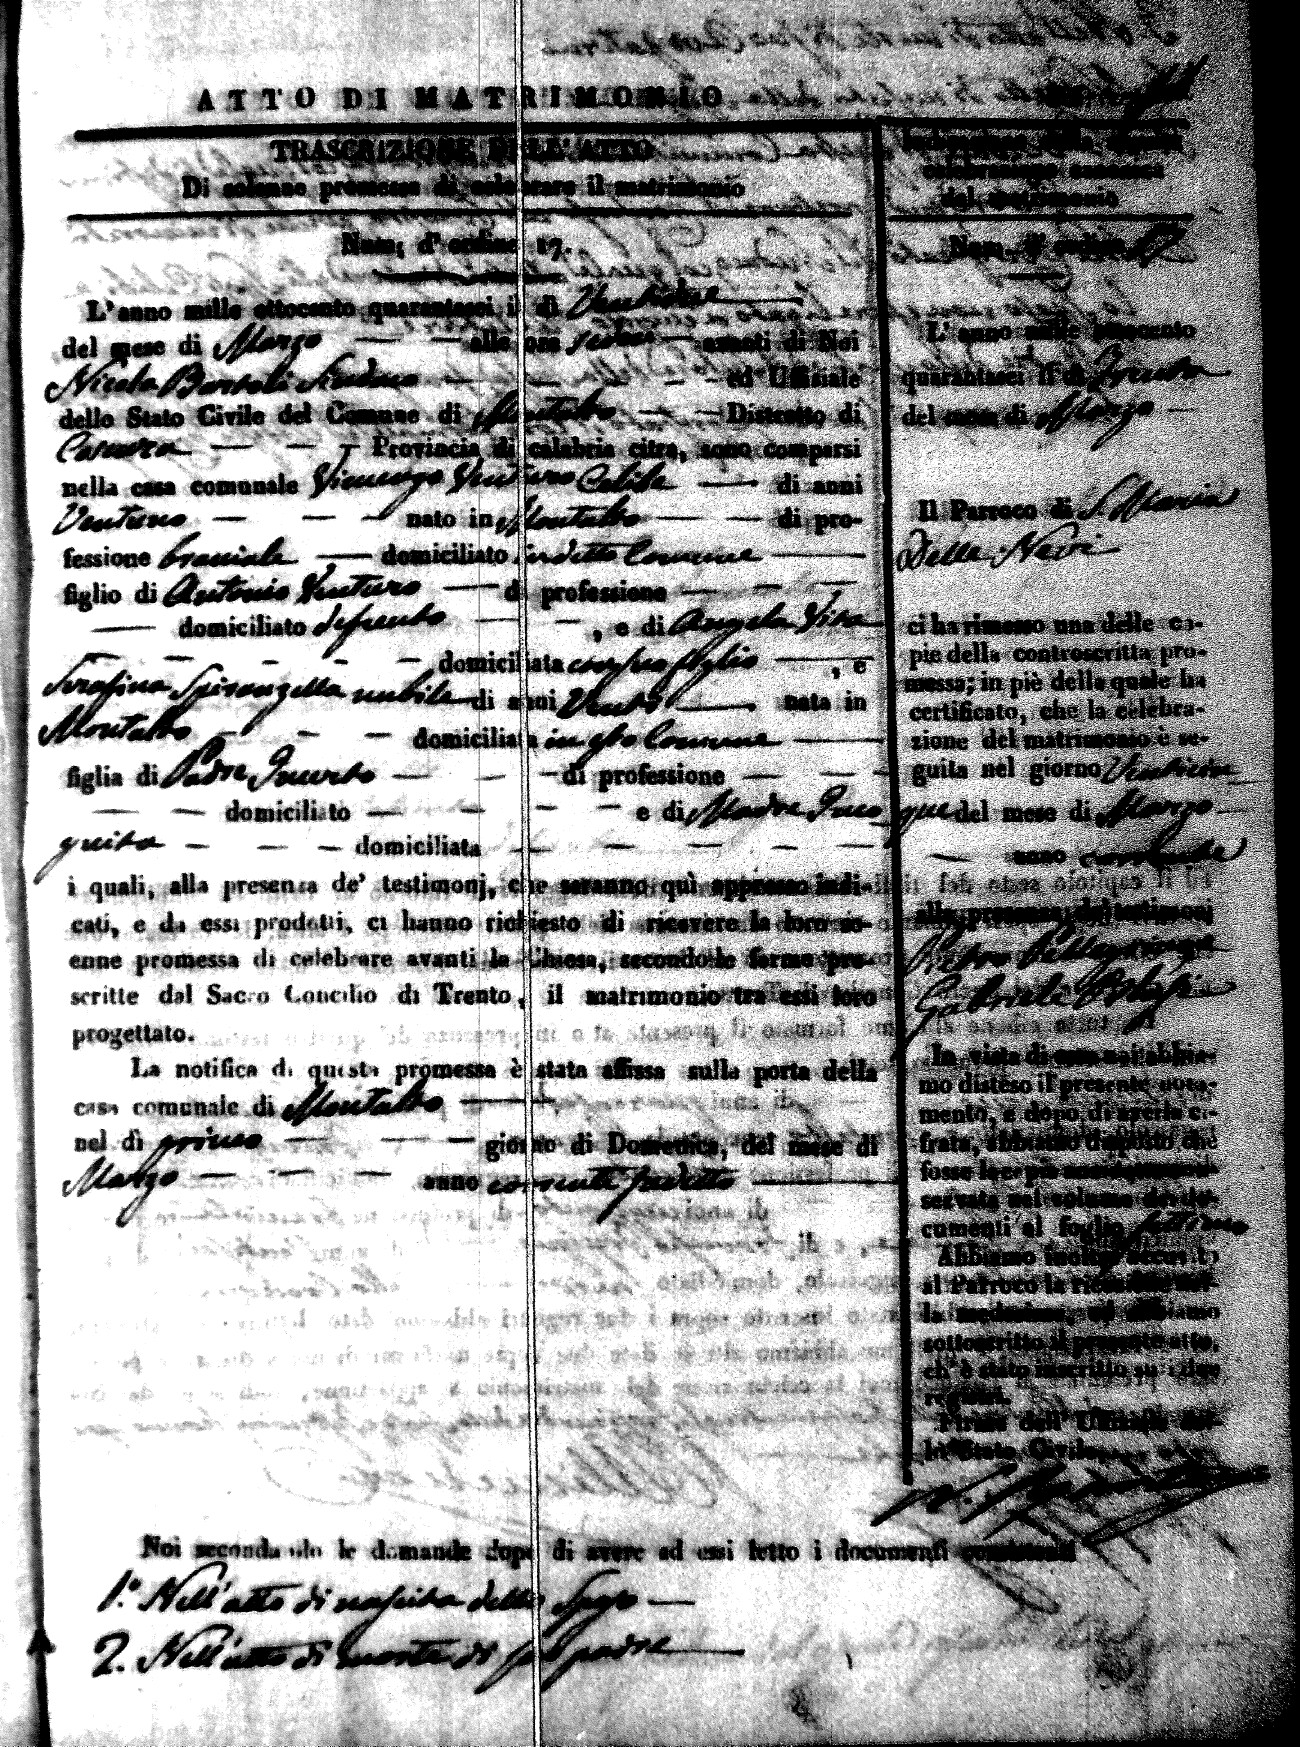 ATTO DI MATRIMONIO
TRASCRIZIONE DELL' ATTO
Di solenne promessa di celebrare il matrimonio
Num; d' ordine 17.
L' anno mille ottocento quarantasei il dì
del mese di Marzo — — alle ore — avanti di Noi
Nicola Bartoli Sindaco — — — — ed Uffiziale
dello Stato Civile del Comune di Montalto — — Distretto di
Cosenza — — — Provincia di calabria citra, sono comparsi
nella casa comunale Vincenzo Venturo Celibe — di anni
Ventuno — — — nato in Montalto — — di pro-
fessione bracciale — domiciliato in detto Comune —
figlio di Antonio Venturo — di professione — — —
— domiciliato defunto — — , e di Angela Vita
— — — — — domiciliata con suo figlio — , e
Serafina nubile di anni Venti — nata in
Montalto — — — domiciliata in Comune —
figlia di Padre Incerto — — — di professione — —
— — domiciliato — — — — e di Madre Inco
gnita — — — domiciliata — — — — —
i quali, alla presenza de' testimonj, che saranno quì appresso indi-
cati, e da essi prodotti, ci hanno richiesto di ricevere la loro so-
enne promessa di celebrare avanti la Chiesa, secondo le forme pre-
scritte dal Sacro Concilio di Trento, il matrimonio tra essi loro
progettato.
La notifica di questa promessa è stata affissa sulla porta della
casa comunale di Montalto —
nel dì primo — — — giorno di Domenica, del mese di
Marzo — — — — anno corrente —
Noi secondando le domande dopo di avere ad essi letto i documenti
1.° Nell' atto di nascita dello Sposo —
2. Nell' atto di morte di suo padre —
celebrazione canonica
del matrimonio
Num. d' ordine 17
L' anno mille ottocento
quarantasei il dì Trenta
del mese di Marzo —
Il Parroco di S. Maria
Della Nevi
ci ha rimesso una delle co-
pie della controscritta pro-
messa; in piè della quale ha
certificato, che la celebra-
zione del matrimonio è se-
guita nel giorno Venticin
que del mese di Marzo
— anno corrente
alla presenza dei testimonj
Pietro
Gabriele
In vista di essa noi abbia-
mo disteso il presente nota-
mento, e dopo di averla ci-
frata, abbiamo disposto che
fosse
servata nel volume dei do-
cumenti al foglio settimo
Abbiamo inoltre accusato
al Parroco la ricezione del-
la medesima, ed abbiamo
sottoscritto il presente atto,
ch' è stato inscritto su i due
registri.
Firma dell' Uffiziale del-
lo Stato Civile